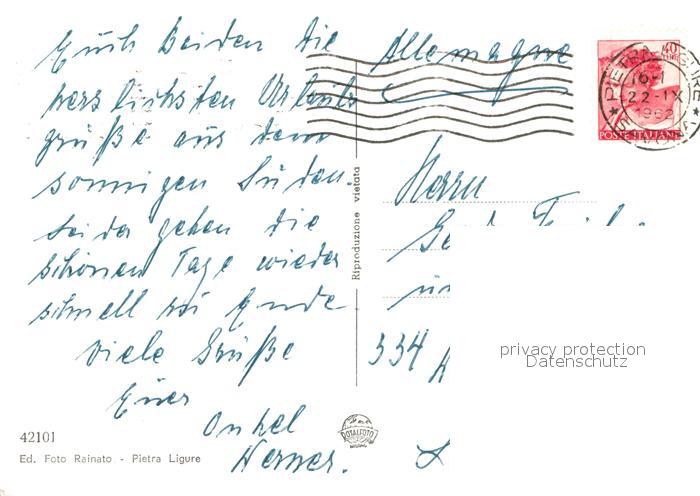 Euch beiden die
herzlichsten Urlaubs
grüße aus dem
sonnigen Süden.
Leider gehen die
schönen Tage wieder
schnell zu Ende
Viele Grüße
Euer
Onkel
Werner.
42101
Ed. Foto Rainato - Pietra Ligure
Riproduzione vietata
Allemagne
40
PIETRA LIGURE
16-1
22-IX
1962
POSTE ITALIANE
Herrn
334
privacy protection
Datenschutz